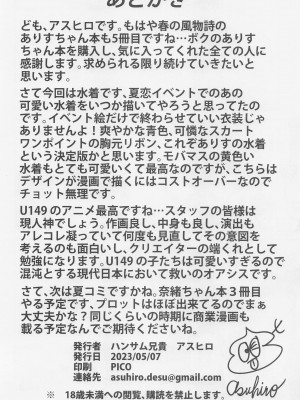 あとがき
ども、アスヒロです。もはや春の風物詩の
ありすちゃん本も5冊目ですね…ボクのありす
ちゃん本を購入し、気に入ってくれた全ての人に
感謝します。求められる限り続けていきたいと
思います。
さて今回は水着です、夏恋イベントでのあの
可愛い水着をいつか描いてやろうと思ってたの
です。イベント絵だけで終わらせていい衣装じゃ
ありませんよ!爽やかな青色、可憐なスカート
ワンポイントの胸元リボン、これぞありすの水着
という決定版かと思います。モバマスの黄色い
水着もとても可愛くて最高なのですが、こちらは
デザインが漫画で描くにはコストオーバーなので
チョット無理です。
U149のアニメ最高ですね…スタッフの皆様は
現人神でしょう。作画良し、中身も良し、演出も
アレコレ凝っていて何度も見直してその意図を
考えるのも面白いし、クリエイターの端くれとして
勉強になります。U149の子たちは可愛いすぎるので
混沌とする現代日本において救いのオアシスです。
さて、次は夏コミですかね。奈緒ちゃん本3冊目
やる予定です、プロットはほぼ出来てるのでまぁ
大丈夫かな?同じくらいの時期に商業漫画も
載る予定なんでご期待くださいね。
発行者 ハンサム兄貴 アスヒロ
発行日 2023/05/07
印刷 PICO
連絡先 asuhiro.desu@gmail.com
asuhiro
※ 18歳未満への閲覧、購読を禁止します。